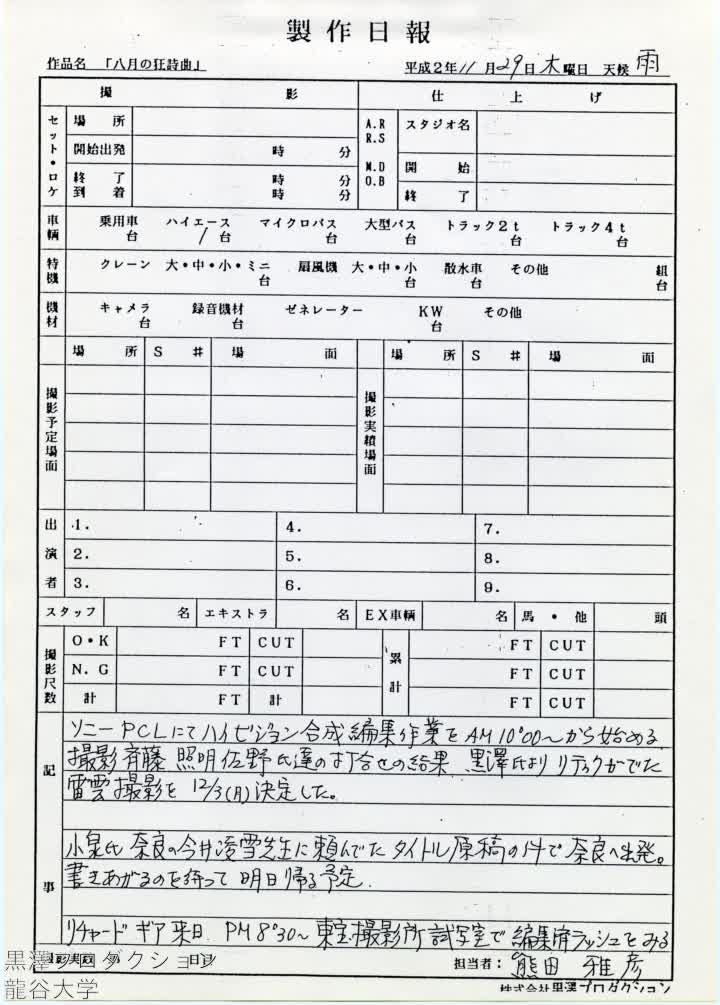 製作日報
作品名 「八月の狂詩曲」 平成2年11月29日木曜日 天候 雨
撮 影 仕 上 げ
セット・ロケ 場 所 A.R R.S スタジオ名
開始出発 時 分 M.D O.B 開 始
終 了 時 分 終 了
到 着 時 分
車輌 乗用車 台 ハイエース 1台 マイクロバス 台 大型バス 台 トラック2t 台 トラック4t 台
特機 クレーン 大・中・小・ミニ 台 扇風機 大・中・小 台 散水車 台 その他 組 台
機材 キャメラ 台 録音機材 台 ゼネレーター KW 台 その他
場 所 S # 場 面 場 所 S # 場 面
撮影予定場面 撮影実績場面
出演者 1. 4. 7.
2. 5. 8.
3. 6. 9.
スタッフ 名 エキストラ 名 EX車輌 名 馬・他 頭
撮影尺数 O・K FT CUT 累計 FT CUT
N.G FT CUT FT CUT
計 FT 計 FT CUT
記事
ソニーPCLにてハイビジョン合成編集作業をAM10°00〜から始める
撮影斉藤 照明佐野氏達の打合せの結果 黒澤氏より リテイクがでた
雷雲撮影を 12/3(月)決定した。
小泉氏 奈良の今井凌雪先生に頼んでた タイトル原稿の件で 奈良へ出発。
書きあがるのを待って 明日帰る予定.
リチャード ギア来日 PM8°30〜 東宝撮影所試写室で 編集済ラッシュをみる
撮影実数 日 担当者: 熊田 雅彦
株式会社黒澤プロダクション
黒澤プロダクション
龍谷大学